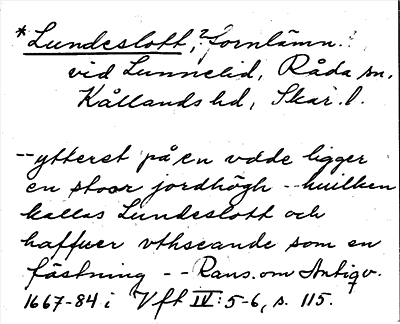 *Lundeslott, ? fornlämn.
vid Lunnelid, Råda sn,
Kållands hd, Skar. l.
-- ytterst på en vdde ligger
en stoor jordhögh -- huilken
kallas Lundeslott och
haffuer vthseande som en
fästning -- Rans. om Antiqv.
1667-84 i Vft IV: 5-6, s. 115.